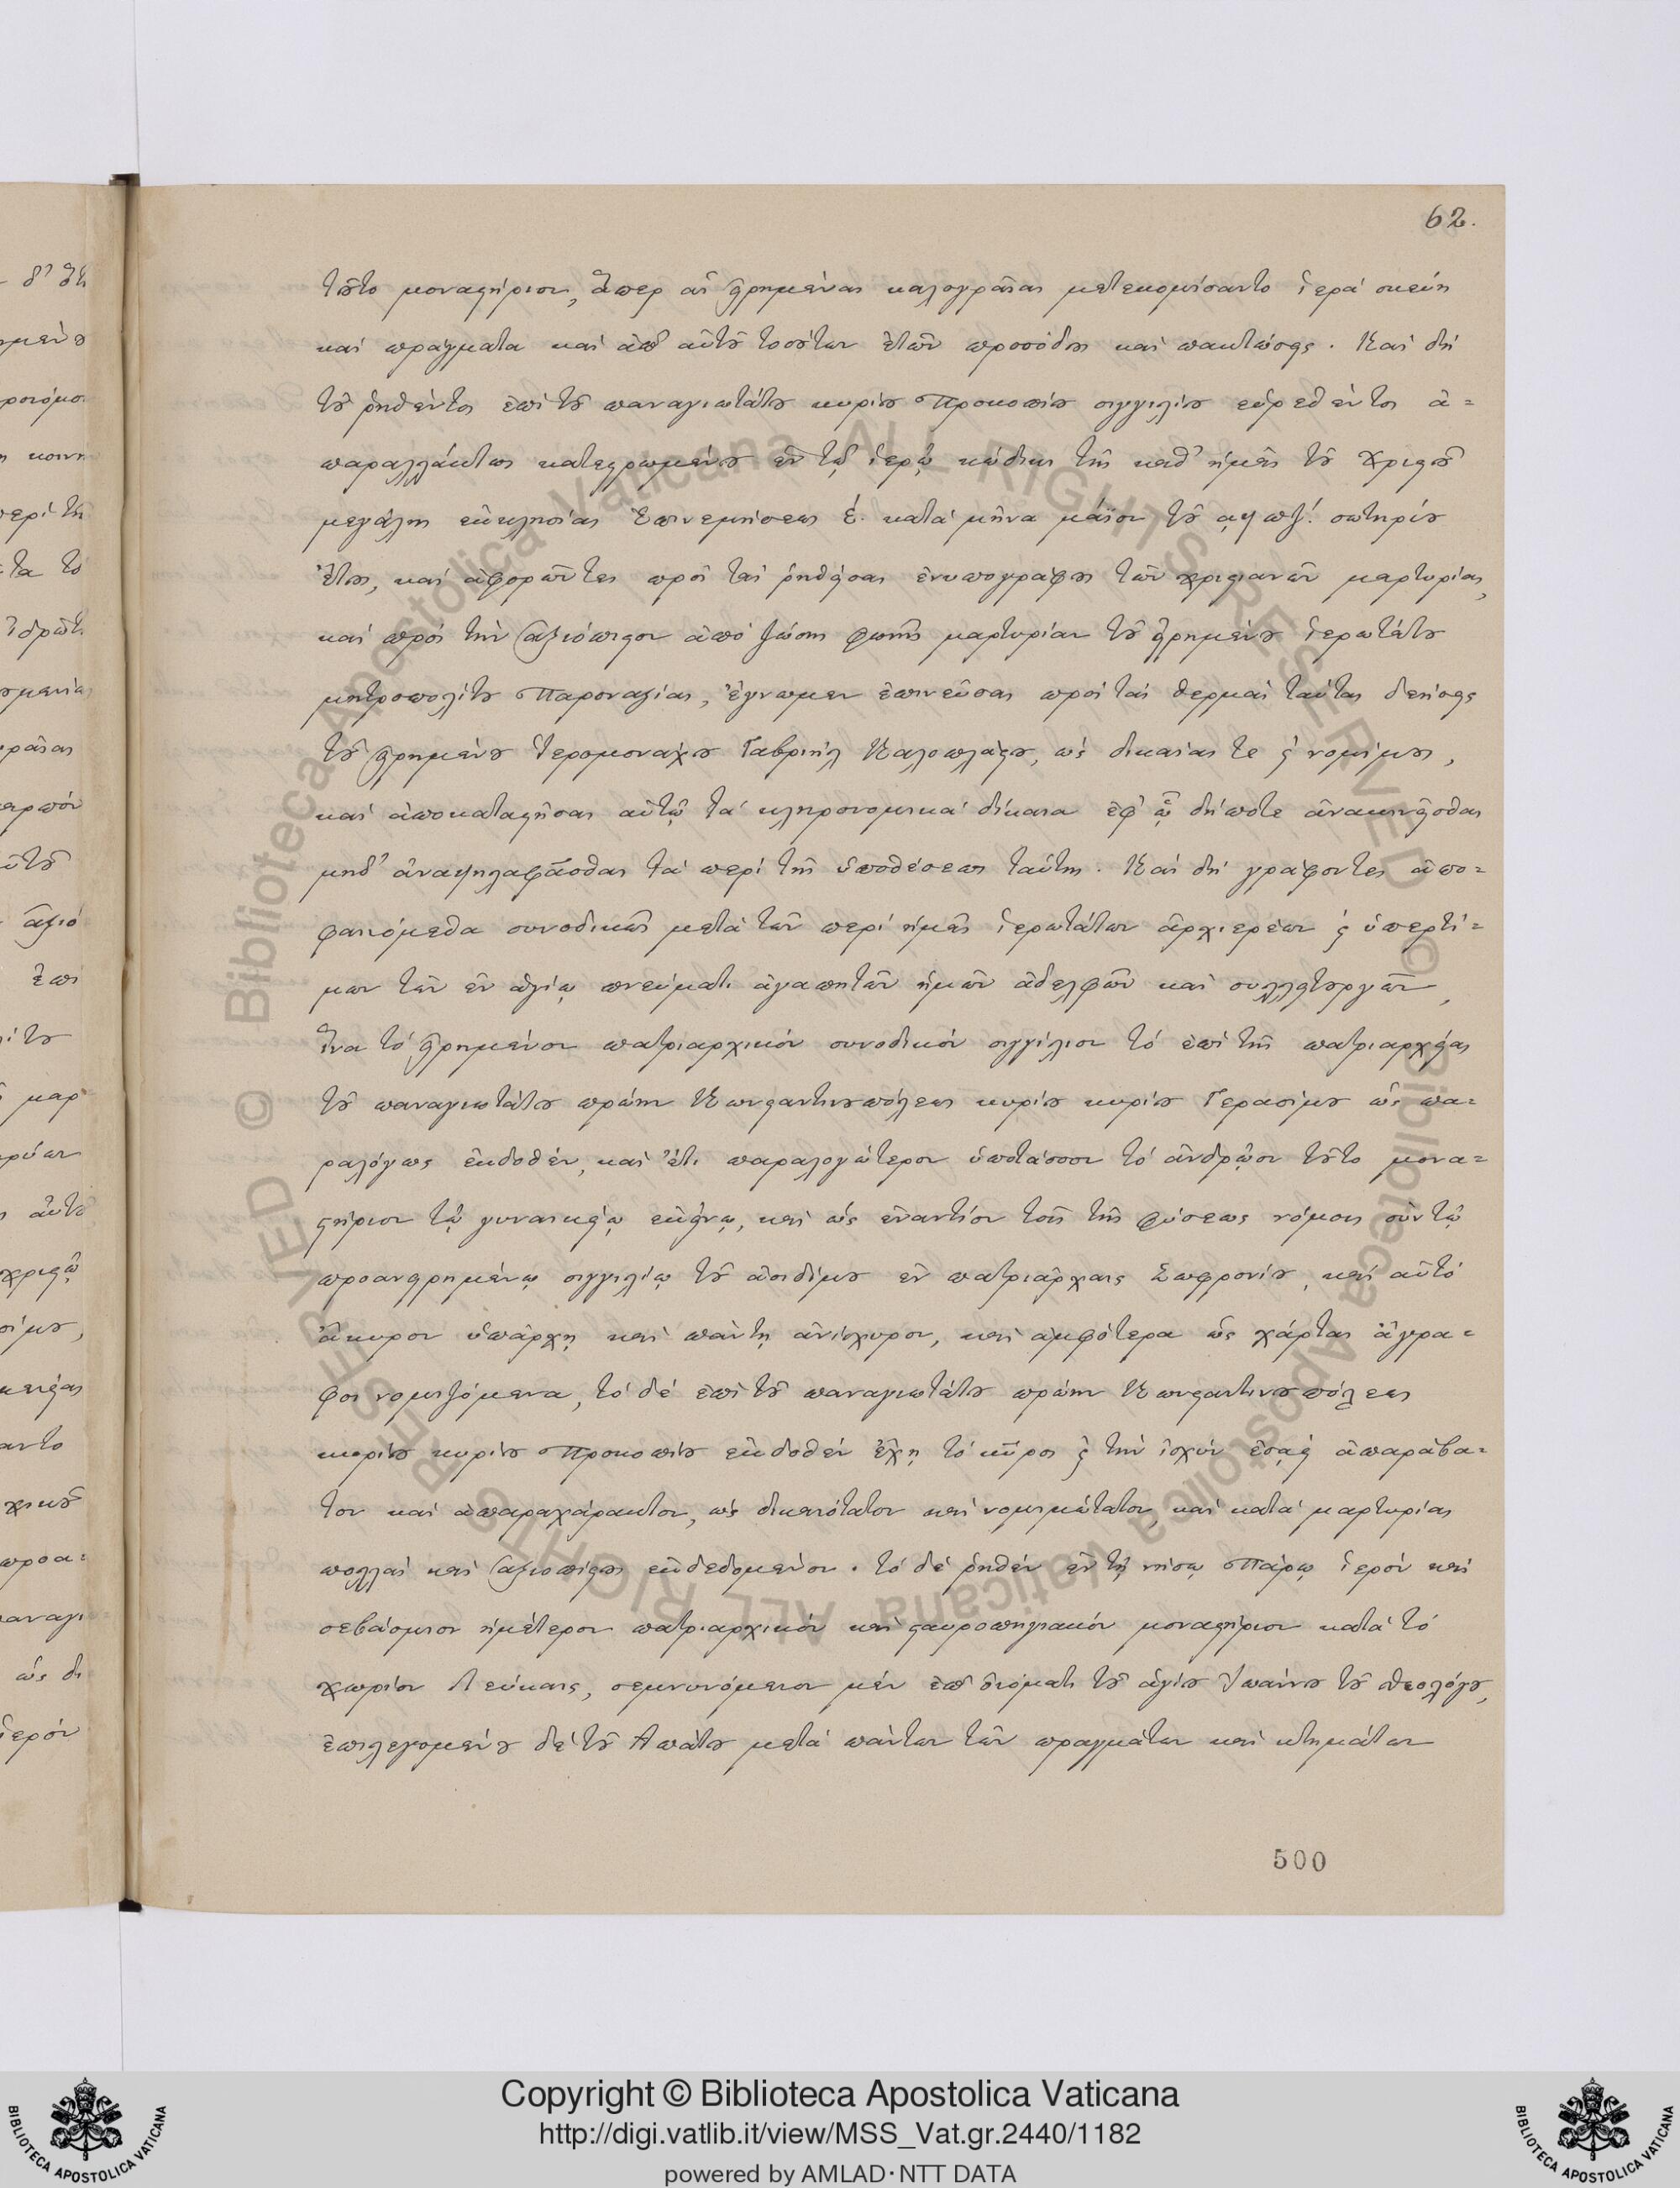 62.
τοῦτο μοναστήριον, ἅπερ αἱ εἰρημέναι καλογραῖαι μετεκομίσαντο ἱερὰ σκεύη
καὶ πράγματα καὶ ἀπ' αὐτοῦ τοσούτων ἐτῶν προσόδους καὶ πακτώσεις. Καὶ δὴ
τοῦ ῥηθέντος ἐπὶ τοῦ παναγιωτάτου κυρίου Προκοπίου σιγγιλίου εὑρεθέντος ἀ=
παραλλάκτως κατεστρωμένου ἐν τῷ ἱερῷ κώδικι τῆς καθ' ἡμᾶς τοῦ Χριστοῦ
μεγάλης ἐκκλησίας Ἐπινεμήσεως έ. κατὰ μῆνα μάϊον τοῦ αψπζ΄. σωτηρίου
ἔτους, καὶ ἀφορῶντες πρὸς τὰς ῥηθείσας ἐνυπογράφους τῶν χριστιανῶν μαρτυρίας,
καὶ πρὸς τὴν ἀξιόπιστον ἀπὸ ζώσης φωνῆς μαρτυρίαν τοῦ εἰρημένου ἱερωτάτου
μητροπολίτου Παροναξίας, ἔγνωμεν ἐπινεῦσαι πρὸς τὰς θερμὰς ταύτας δεήσεις
τοῦ εἰρημένου Ἱερομονάχου Γαβριὴλ Καλοπλάστου, ὡς δικαίας τε καὶ νομίμους,
καὶ ἀποκαταστῆσαι αὐτῷ τὰ κληρονομικὰ δίκαια ἐφ' ᾧ δήποτε ἀνακινεῖσθαι
μηδ' ἀναψηλαφᾶσθαι τὰ περὶ τῆς ὑποθέσεως ταύτης. Καὶ δὴ γράφοντες ἀπο=
φαινόμεθα συνοδικῶς μετὰ τῶν περὶ ἡμᾶς ἱερωτάτων ἀρχιερέων καὶ ὑπερτί=
μων τῶν ἐν ἁγίῳ πνεύματι ἀγαπητῶν ἡμῶν ἀδελφῶν καὶ συλλειτουργῶν,
ἵνα τὸ εἰρημένον πατριαρχικόν συνοδικόν σιγγίλιον τὸ ἐπὶ τῆς πατριαρχείας
τοῦ παναγιωτάτου πρώην Κωνσταντινουπόλεως κυρίου κυρίου Γερασίμου ὡς πα=
ραλόγως ἐκδοθέν, καὶ ἔτι παραλογώτερον ὑποτάσσον τὸ ἀνδρῷον τοῦτο μονα=
στήριον τῷ γυναικείῳ ἐκείνῳ, καὶ ὡς ἐναντίον τοῖς τῆς φύσεως νόμοις σὺν τῷ
προανειρημένῳ σιγγιλίῳ τοῦ ἀοιδίμου ἐν πατριάρχαις Σωφρονίου, καὶ αὐτὸ
ἄκυρον ὑπάρχῃ καὶ πάντῃ ἀνίσχυρον, καὶ ἀμφότερα ὡς χάρται ἄγρα=
φοι νομιζόμενα, τὸ δὲ ἐπὶ τοῦ παναγιωτάτου πρώην Κωνσταντινουπόλεως
κυρίου κυρίου Προκοπίου ἐκδοθὲν ἔχῃ τὸ κῦρος καὶ τὴν ἰσχὺν ἐσαεὶ ἀπαράβα=
τον καὶ ἀπαραχάρακτον, ὡς δικαιότατον καὶ νομιμώτατον, καὶ κατὰ μαρτυρίας
πολλὰς καὶ ἀξιοπίστους ἐκδεδομένον. τὸ δὲ ῥηθὲν ἐν τῇ νήσῳ Πάρῳ ἱερὸν καὶ
σεβάσμιον ἡμέτερον πατριαρχικὸν καὶ σταυροπηγιακόν μοναστήριον κατὰ τὸ
χωρίον Λεύκαις, σεμνυνόμενον μὲν ἐπ' ὀνόματι τοῦ ἁγίου Ἰωάννου τοῦ θεολόγου,
ἐπιλεγομένου δὲ τοῦ Απάτου μετὰ πάντων τῶν πραγμάτων καὶ κτημάτων
500
Copyright © Biblioteca Apostolica Vaticana
http://digi.vatlib.it/view/MSS_Vat.gr.2440/1182
powered by AMLAD·NTT DATA